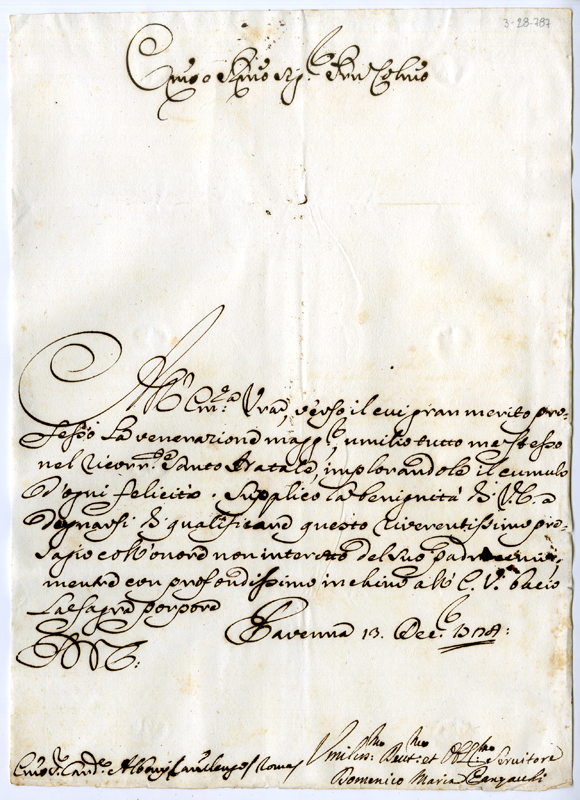 3-28-787
Emo e Rmo Sig.r Prõn Colmo
All' Em.a Vra, verso il cui gran merito pro-
fesso la venerazione magg.r, umilio tutto me stesso
nel ricorr.te Santo Natale, implorandole il cumulo
d'ogni felicità. Supplico la benignità di V. E.
degnarsi di qualificare questo riverentissimo pre-
sagio coll'onore non interotto del suo
mentre con profondissimo inchino all' E. V. bacio
la sagra porpora
Ravenna 13. Dec.
Emo S.r Card.e Albani Roma
Umiliss.mo Devt.mo et Obl.mo Servitore
Domenico Maria